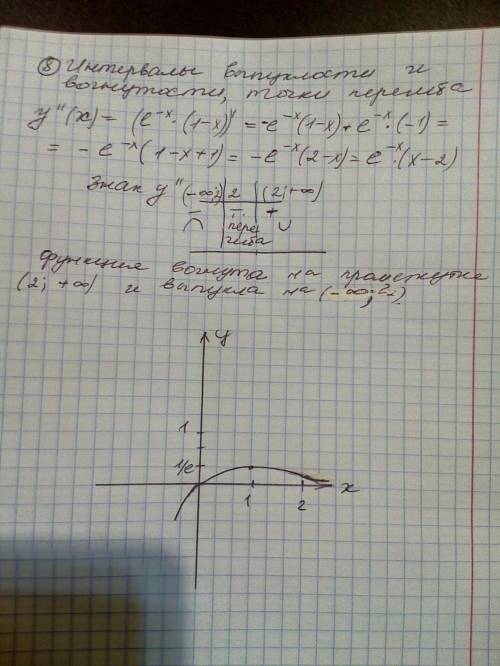 ⑧ Интервалы выпуклости и
вогнутости, точки перегиба
y''(x) = (e⁻ˣ·(1-x))' = -e⁻ˣ(1-x)+e⁻ˣ·(-1) =
= -e⁻ˣ(1-x+1) = -e⁻ˣ(2-x) = e⁻ˣ·(x-2)
Знак y'' (-∞;2) 2 (2;+∞)
- т. +
∩ пере ∪
гиба
Функция вогнута на промежутке
(2; +∞) и выпукла на (-∞;2).
y
1
1/e
1 2 x